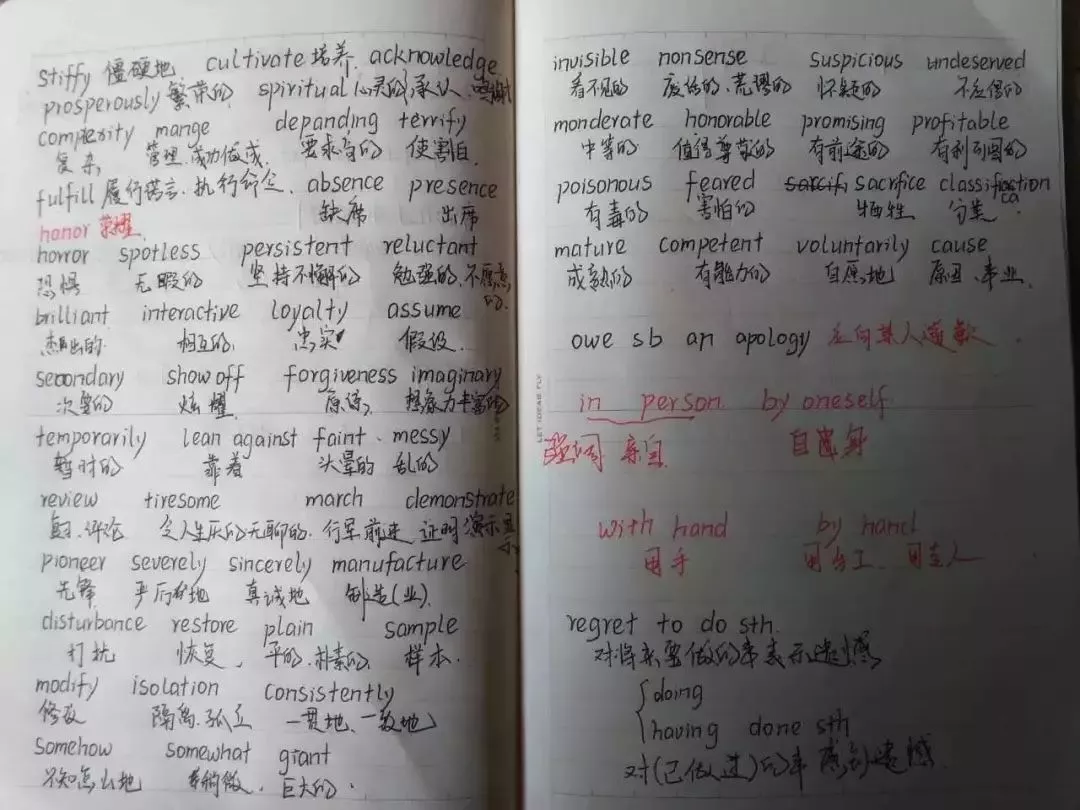 stiffy 僵硬地 cultivate 培养. acknowledge
prosperously 繁荣的 spiritual 心灵的 承认.
comperity mange depanding terrify
复杂 管理.成功做成. 要求高的 使害怕.
fulfill 履行诺言.执行命令. absence presence
缺席 出席
honor 荣耀.
horror spotless persistent reluctant
恐惧 无暇的 坚持不懈的 勉强的.不愿意的.
brilliant interactive loyalty assume
杰出的. 相互的. 忠实 假设.
secondary show off forgiveness imaginary
次要的 炫耀 原谅 想象力丰富的
temporarily lean against faint . messy
暂时的 靠着 头晕的 乱的
review tiresome march demonstrate
复习.评论 令人生厌的无聊的. 行军前进 证明演示显示
pioneer severely sincerely manufacture
先锋 严厉地 真诚地 制造(业).
disturbance restore plain sample
打扰 恢复. 平的.朴素的. 样本.
modify isolation consistently
修改 隔离.孤立 一贯地、一致地
somehow somewhat giant
不知怎么地 稍微. 巨大的.
invisible nonsense suspicious undeserved
看不见的 废话的.荒谬的 怀疑的 不应得的
monderate honorable promising profitable
中等的 值得尊敬的 有前途的 有利可图的
poisonous feared sacrfice classification
有毒的 害怕的 牺牲 分类
mature competent voluntarily cause
成熟的 有能力的 自愿地 原因、事业.
owe sb an apology 应向某人道歉.
in person. by oneself
强调 亲自. 自身
with hand by hand
用手 用手工、用专人
regret to do sth.
对将来要做的事表示遗憾
doing
having done sth
对(已做过)的事感到遗憾.